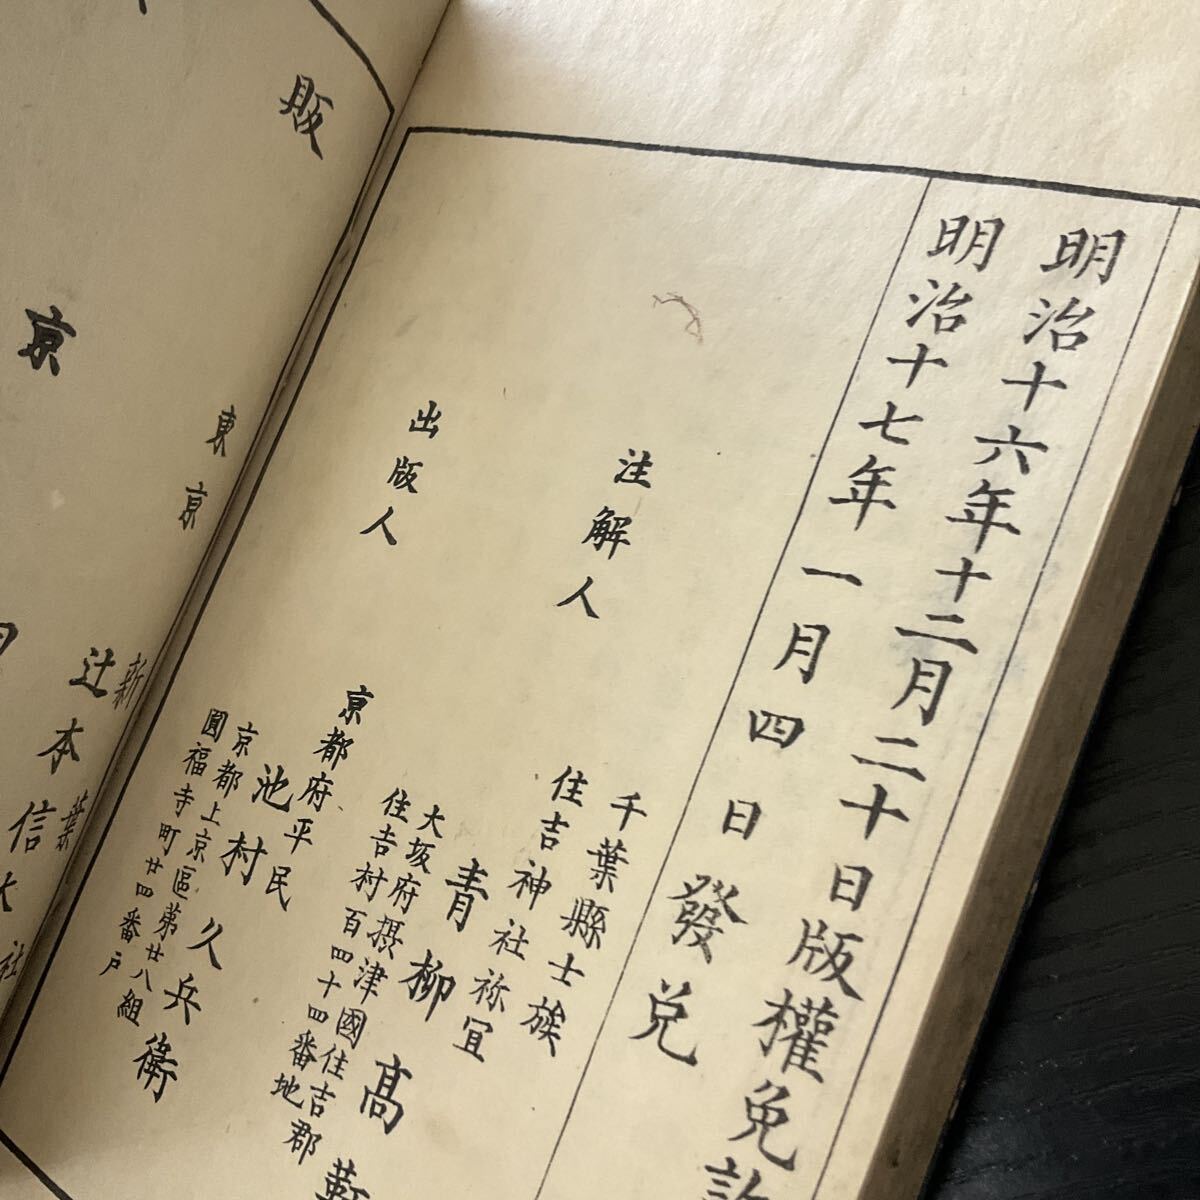 明治十六年十二月二十日版權免許
明治十七年一月四日發兌
注解人
千葉縣士族
住吉神社祢宜
青柳髙
大坂府摂津國住吉郡
住吉村百四十四番地
出版人
京都府平民
池村久兵衛
京都上京區第廿八組
圓福寺町廿四番戸
販
東京
辻本信
京